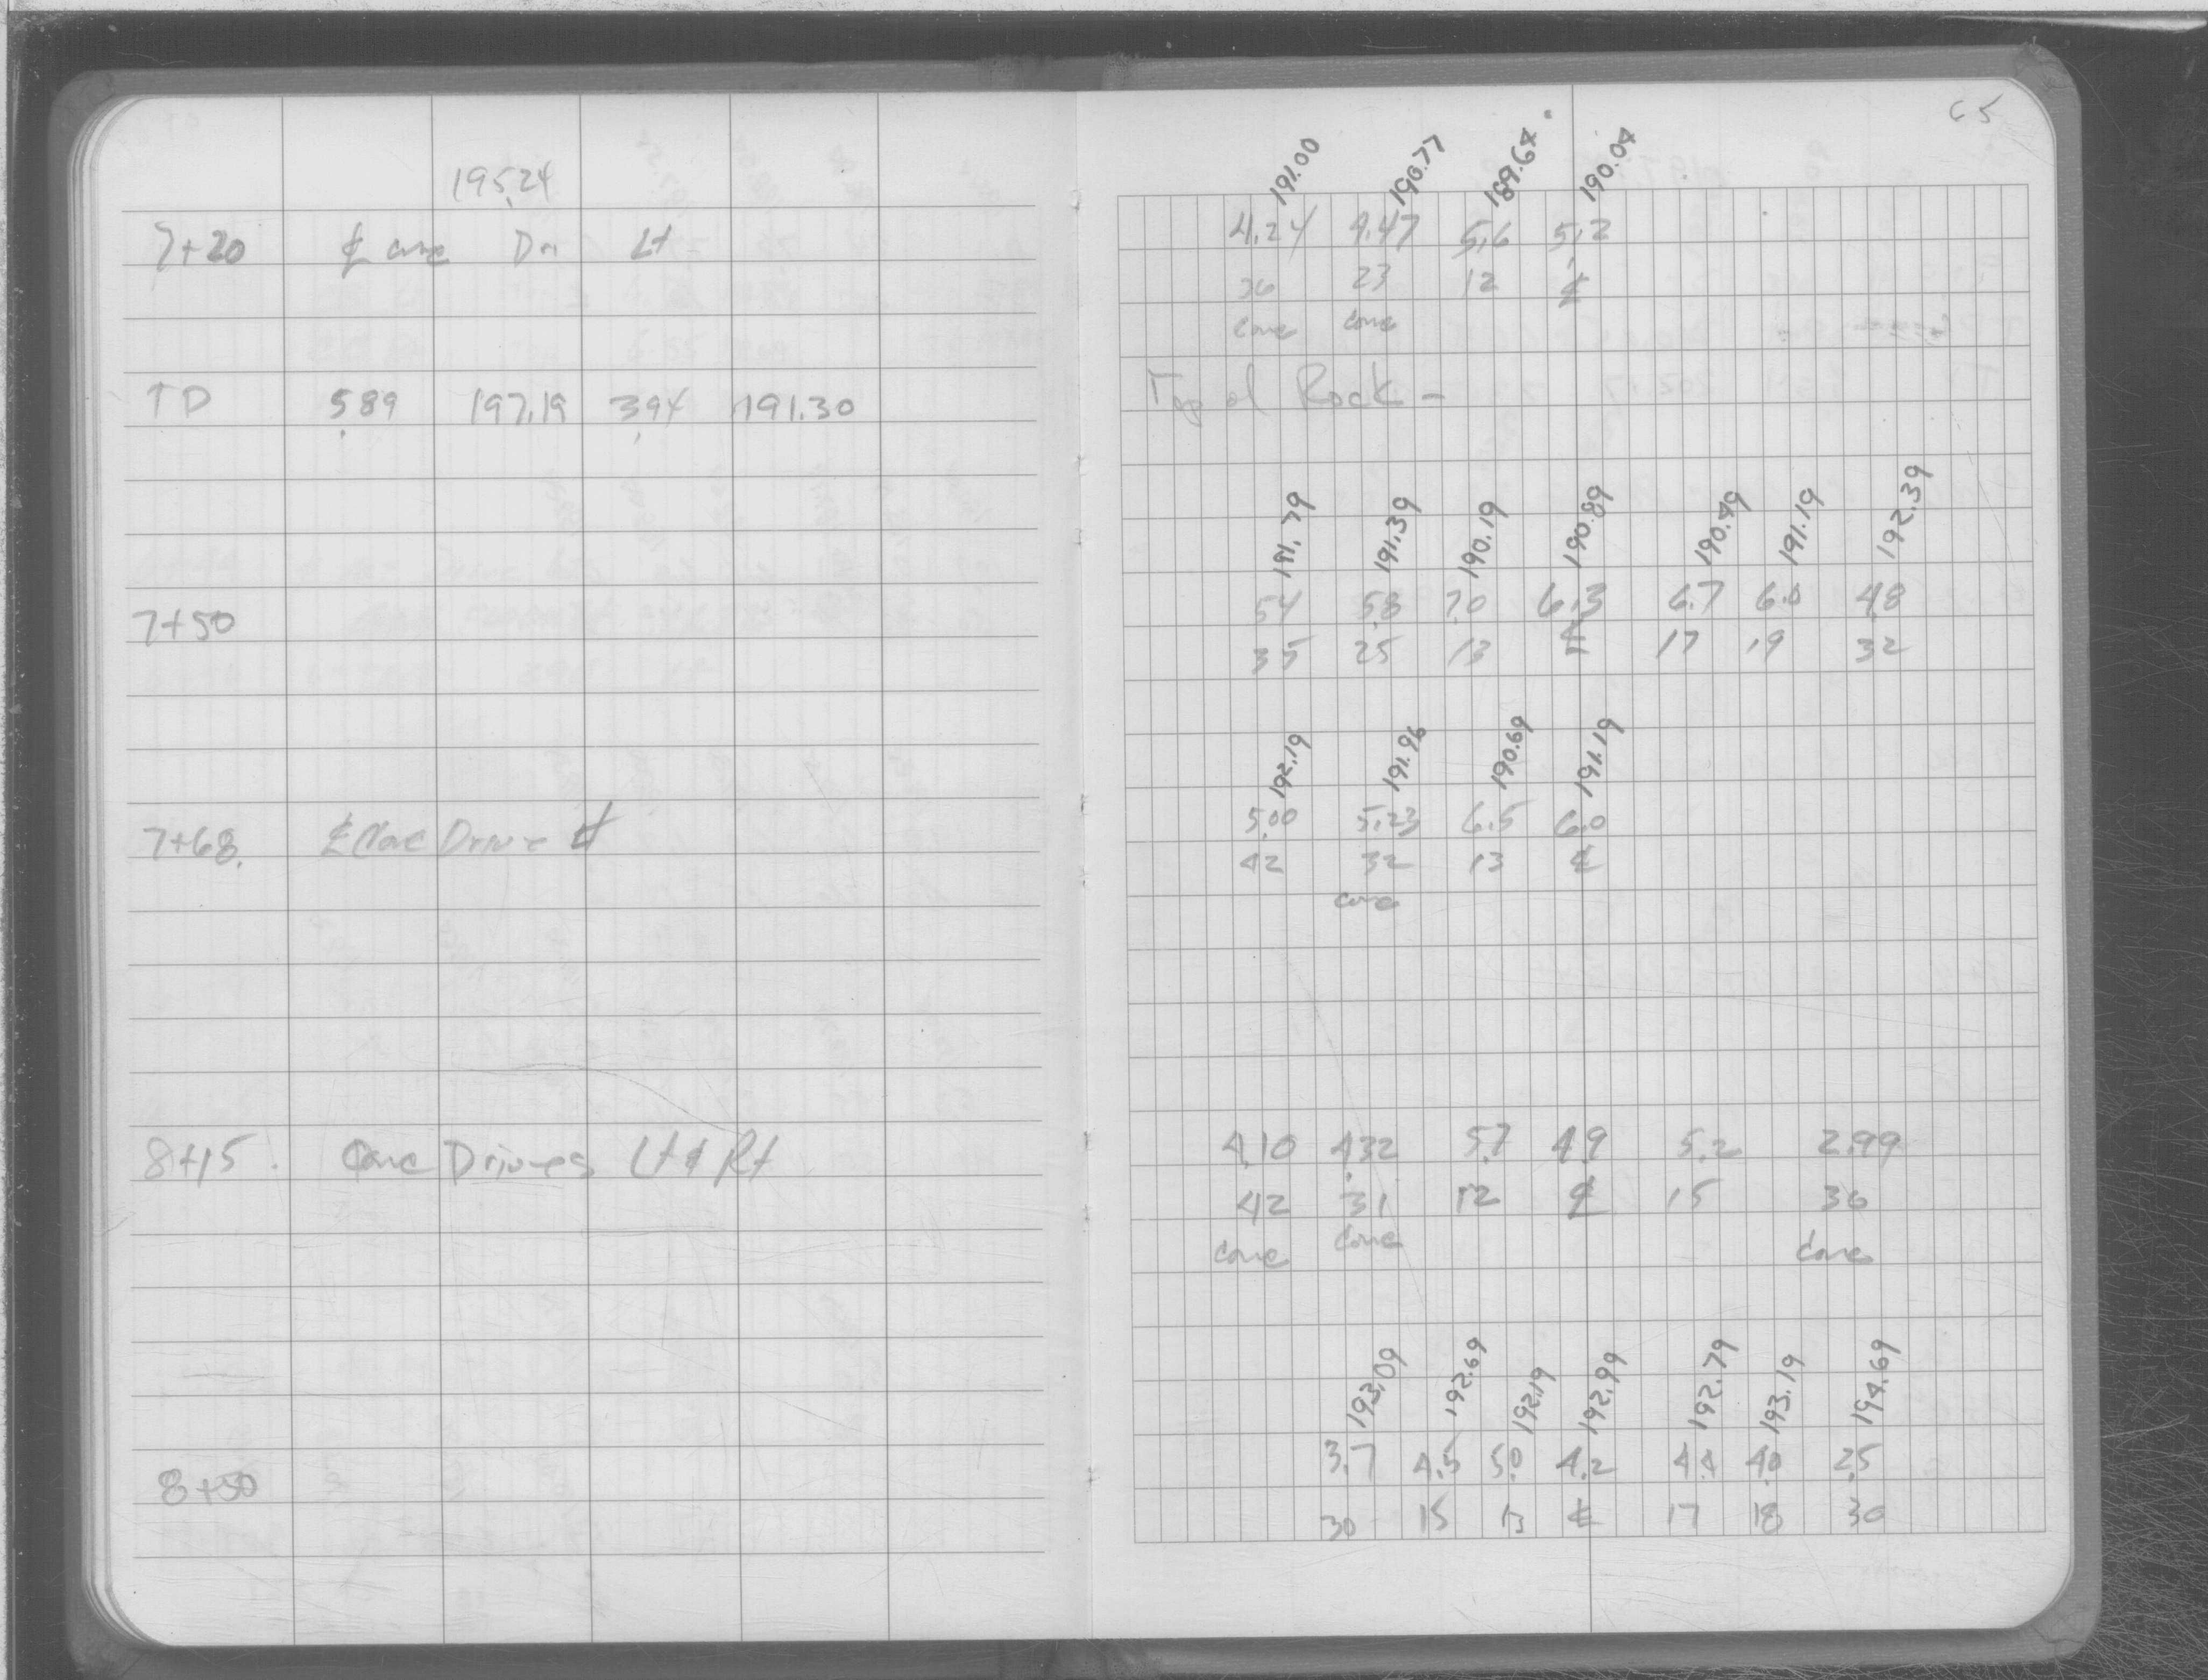 195.24
7+20 ℄ conc Dri Lt
TP 5.89 197.19 3.94 191.30
7+50
7+68. ℄ Conc Drive Lt
8+15. Conc Drives Lt & Rt
8+50
65
191.00 190.77 189.64 190.04
4.24 4.47 5.6 5.2
36 23 12 ℄
Conc Conc
Top of Rock -
191.79 191.39 190.19 190.89 190.49 191.19 192.39
5.4 5.8 7.0 6.3 6.7 6.0 4.8
35 25 13 ℄ 17 19 32
192.19 191.96 190.69 191.19
5.00 5.23 6.5 6.0
42 32 13 ℄
conc
4.10 4.32 5.7 4.9 5.2 2.99
42 31 12 ℄ 15 36
Conc Conc Conc
193.09 192.69 192.19 192.99 192.79 193.19 194.69
3.7 4.5 5.0 4.2 4.4 4.0 2.5
30 15 13 ℄ 17 18 30